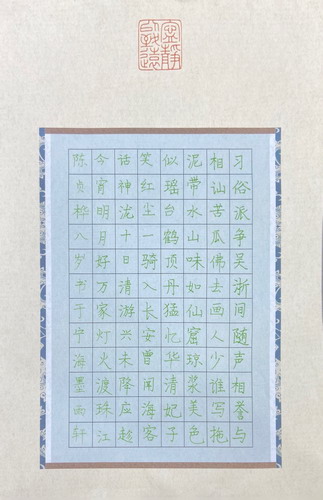 寧靜
致遠
习俗派争吴浙间随声相誉与
相讪苦瓜佛去画人少谁写拖
泥带水山味如仙窟琼浆美色
似瑶台鹤顶丹猛忆华清妃子
笑红尘一骑入长安曾闻海客
话神泷十日清游兴未降应趁
今宵明月好万家灯火渡珠江
陈贞桦八岁书于宁海墨雨轩